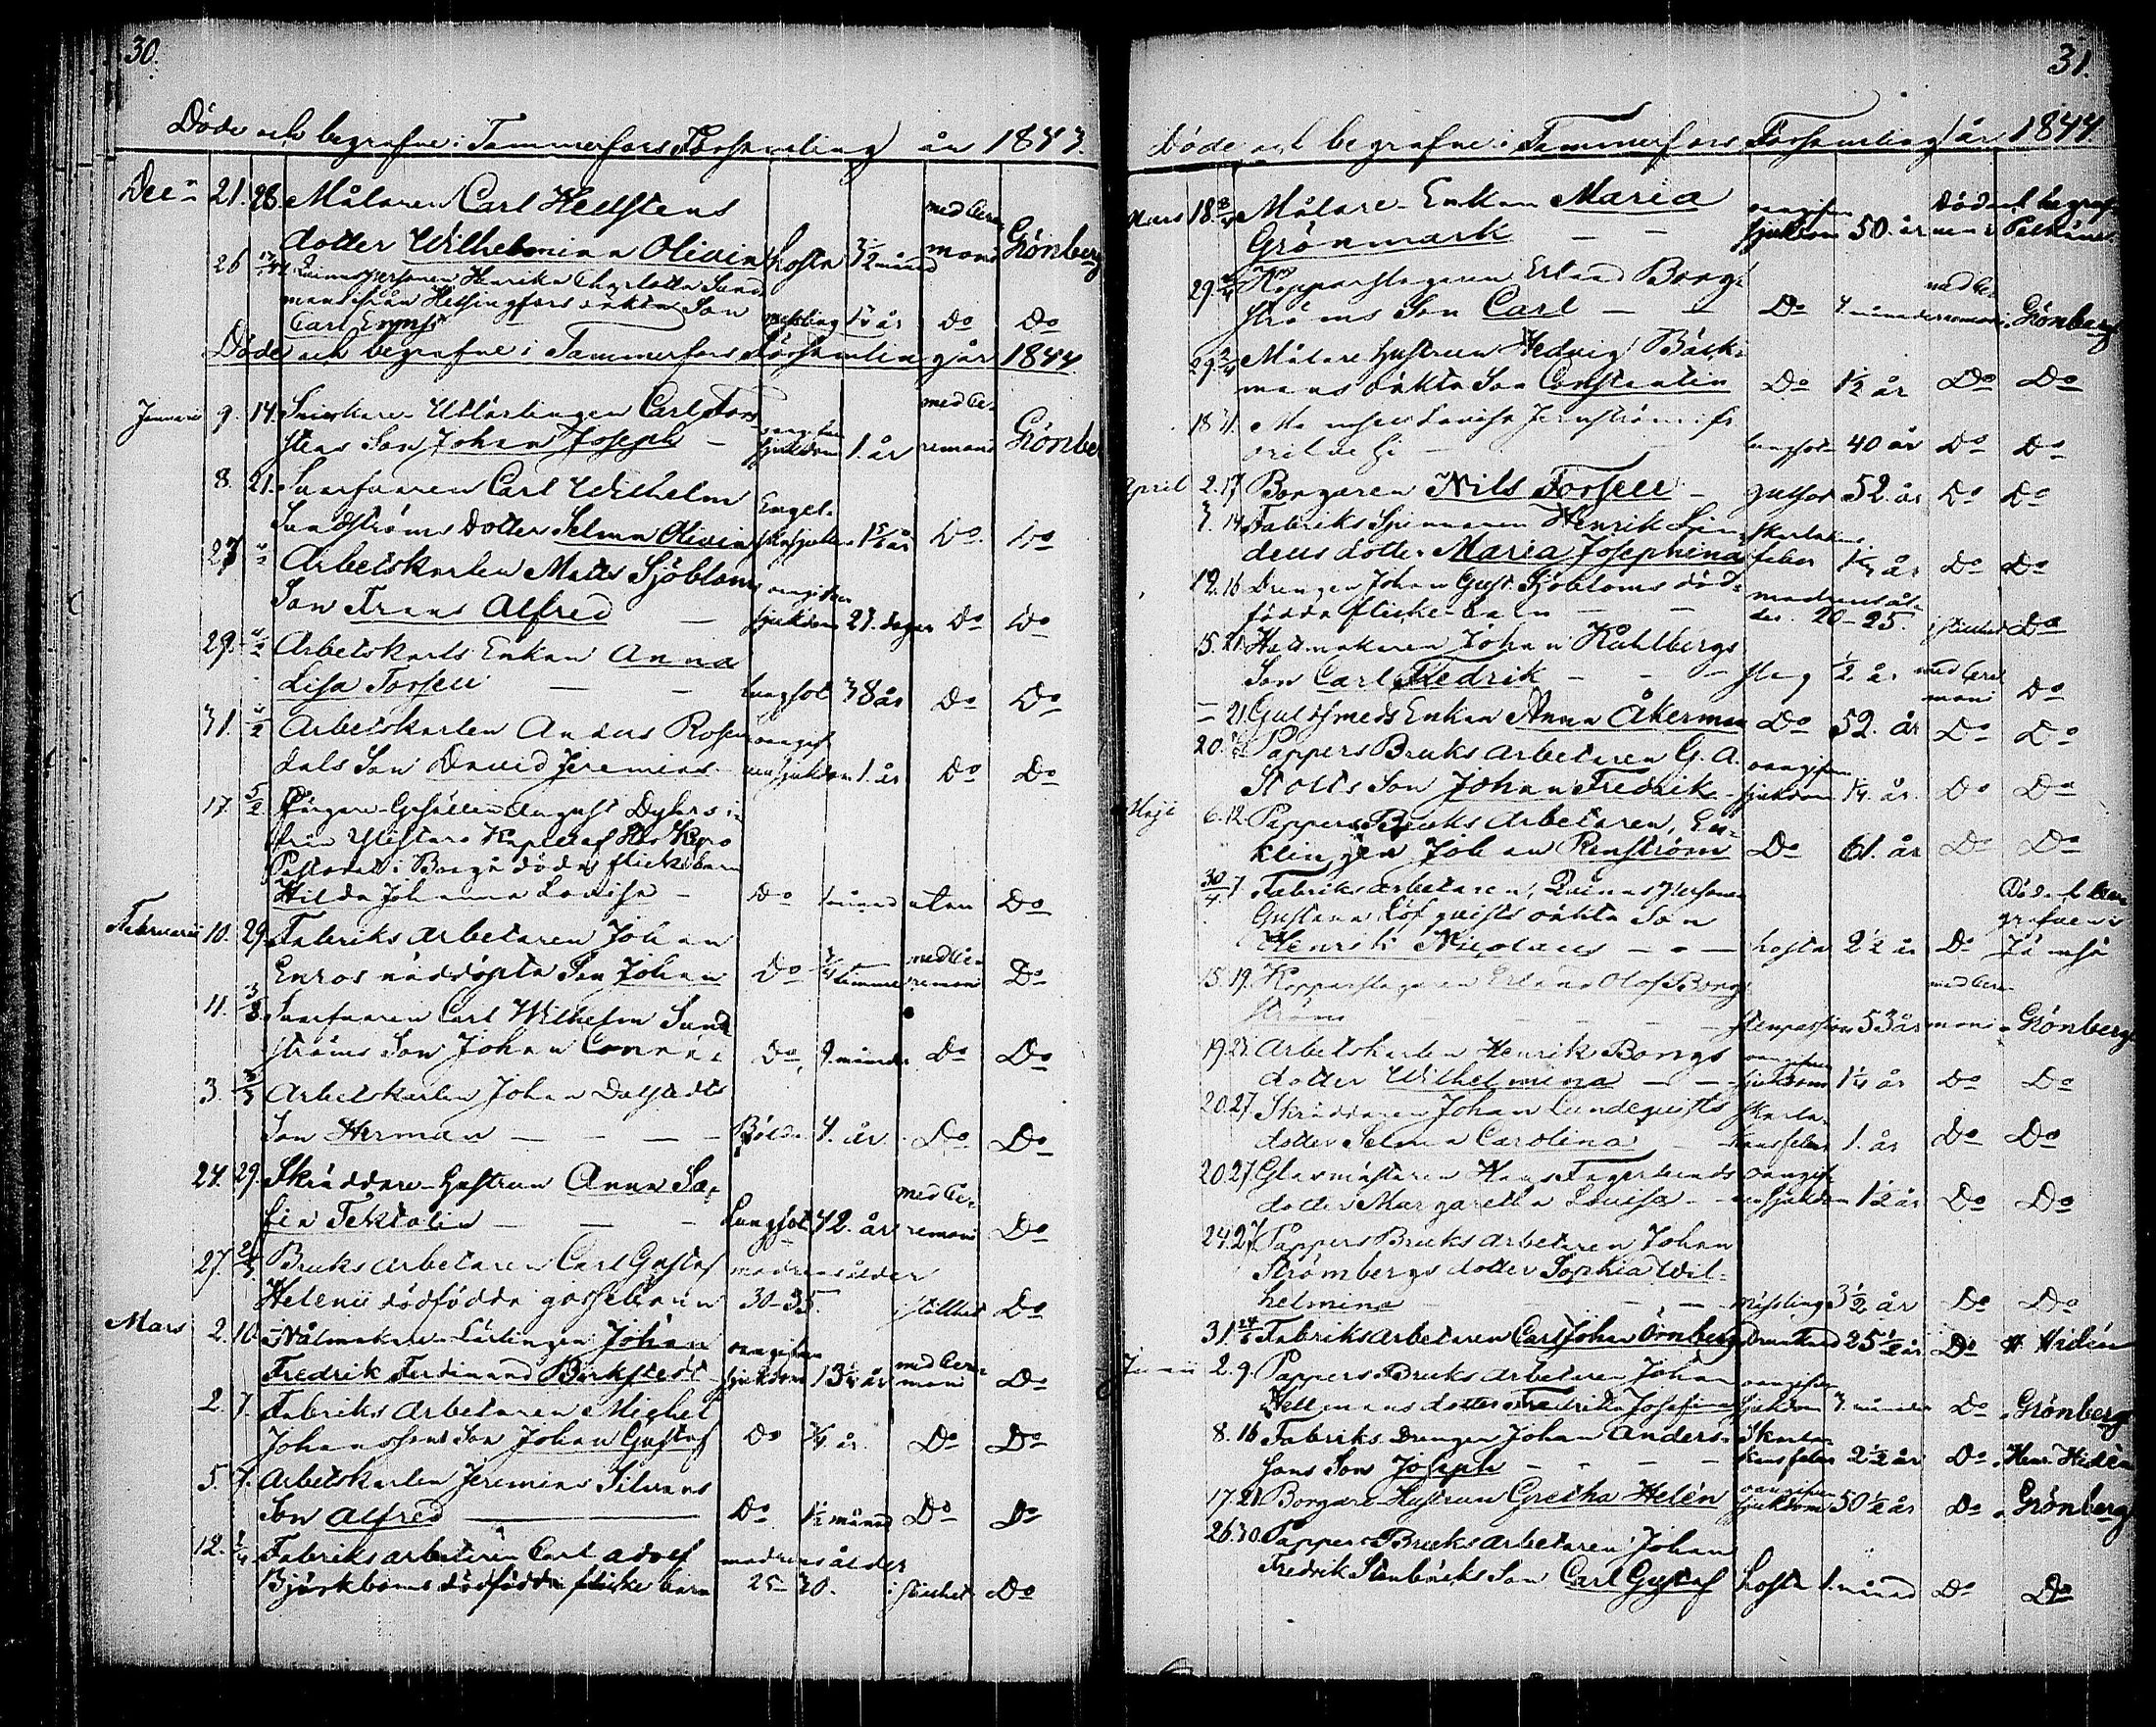 30.
Döde och begrafne i Tammerfors Församling år 1843.
Dec 21. 28. Målaren Carl Hellstens
dotter Wilhelmina Olivia hosta 3½ månad med Ceremoni Grönberg
26 Qvinnspersonen Henrika Charlotta
från Helsingfors oäkta Son
Carl messling år Do Do
Döde och begrafne i Tammerfors Församling år 1844
Januarii 9. 14. Snickare Utlärlingen Carl
stens Son Johan Joseph – oangifven sjukdom 1. år med Ceremoni
8. 21. Svarfvaren Carl Wilhelm
Sundströms Dotter Selma Olivia Engelska sjukan år Do Do
27 Arbetskarlen Matts Sjöbloms
Son Frans Alfred – oangifven sjukdom 21. dagar Do Do
29. Arbetskarls Enkan Anna
Lisa Forsell – – lungsot 38 år Do Do
31. Arbetskarlen Anders Rosen
dals Son David Jeremias oangifven sjukdom 1. år Do Do
17. 5/2 Gesällen August
från Kapell af
i Borgå döda flickebarn
Hilda Johanna Lovisa – Do 1 månad utan Do
Februarii 10. 29. Fabriks arbetaren Johan
Enros nöddöpta Son Johan Do ¾ timme med Ceremoni Do
11. 3/3 Svarfvaren Carl Wilhelm Sund
ströms Son Johan Do 9 månader Do Do
3. 3/3 Arbetskarlen Johan Dalstedts
Son Herman – – – – Bölder 4. år Do Do
24. 29. Skräddare Hustrun Anna So-
fia Tektolin – – – Lungsot 42. år med Ceremoni Do
27. Bruks arbetaren Carl Gustaf
Helenii dödfödda gossebarn modrens ålder 30–35. i stillhet Do
Mars 2. 10. Nålmakare Lärlingen Johan
Fredrik Ferdinand Birkstedt oangifven sjukdom 13¼ år med Ceremoni Do
2. 7. Fabriks arbetaren Michel
Johanssons Son Johan Gustaf Do ¾ år Do Do
5. 7. Arbetskarlen Jeremias Silvans
Son Alfred Do 1½ månad Do Do
12. Fabriks arbetaren Carl Adolf
Björkboms dödfödda flicke barn modrens ålder 25–30. i stillhet Do
31.
Döde och begrafne i Tammerfors Församling år 1844.
Mars 18. Målare Enkan Maria
Grönmark – – oangifven sjukdom 50. år Död och begrafven i Pelkäne
29. Kopparslagaren Erland Borg-
ströms Son Carl – – Do månader med Ceremoni Grönberg
29. Målare hustrun Hedvig Bäck-
mans oäkta Son Constantin Do 1½ år Do Do
18 31. Lovisa Jernström
lungsot 40 år Do Do
April 2. 17 Borgaren Nils Forsell – gulsot 52. år Do Do
7. 14 Fabriks Spinnaren Henrik Lin-
dells dotter Maria Josephina skarlakans feber år Do Do
12. 16 Drängen Johan Gust. Sjöbloms död-
födda flicke-barn – – modrens ålder 20–25. i stillhet Do
15. 21. Hattmakaren Johan Kuhlbergs
Son Carl Fredrik – – – slag ½ år med Ceremoni Do
– 21. Guldsmeds Enkan Anna Åkerman Do 52. år Do Do
20. Pappers Bruks arbetaren G. A.
Stolts Son Johan Fredrik – oangifven sjukdom 1¼ år Do Do
Maji 6. 12. Pappers Bruks arbetaren, En-
klingen Johan Renström Do 61. år Do Do
30/4. 7. Fabriks arbetaren, Qvinnspersonen
Gustava Löfqvists oäkta Son
Henrik Nicolaus – – – hosta 2½ år Do Död och begrafven i Jämsä
15. 19. Kopparslagaren Erland Olof Borg-
ström – – – – stenpassion 53 år med Ceremoni Grönberg
19. 27. Arbetskarlen Henrik Bongs
dotter Wilhelmina – – oangifven sjukdom 1¼ år Do Do
20. 27 Skräddaren Johan Lundeqvists
dotter Selma Carolina – skarlakansfeber 1. år Do Do
20. 27 Glasmästaren Hans Fagerlunds
dotter Margaretha Lovisa – oangifven sjukdom 1½ år Do Do
24. 27. Pappers Bruks arbetaren Johan
Strömbergs dotter Sophia Wil-
helmina – – – messling 3½ år Do Do
31. Fabriks arbetaren Carl Johan Örnberg Drunknad 25½ år Do H Hidén
Junii 2. 9. Pappers Bruks arbetaren Johan
Hellmans dotter Fredrika Josefina oangifven sjukdom månader Do Grönberg
8. 16 Fabriks Drängen Johan Anders-
sons Son Joseph – – – – Skarlakansfeber 2½ år Do Henr. Hidén
17. 21. Borgare Hustrun Gretha Helén oangifven sjukdom 50½ år Do Grönberg
26. 30. Pappers Bruks arbetaren Johan
Fredrik Stenbäcks Son Carl Gustaf hosta 1. månad Do Do